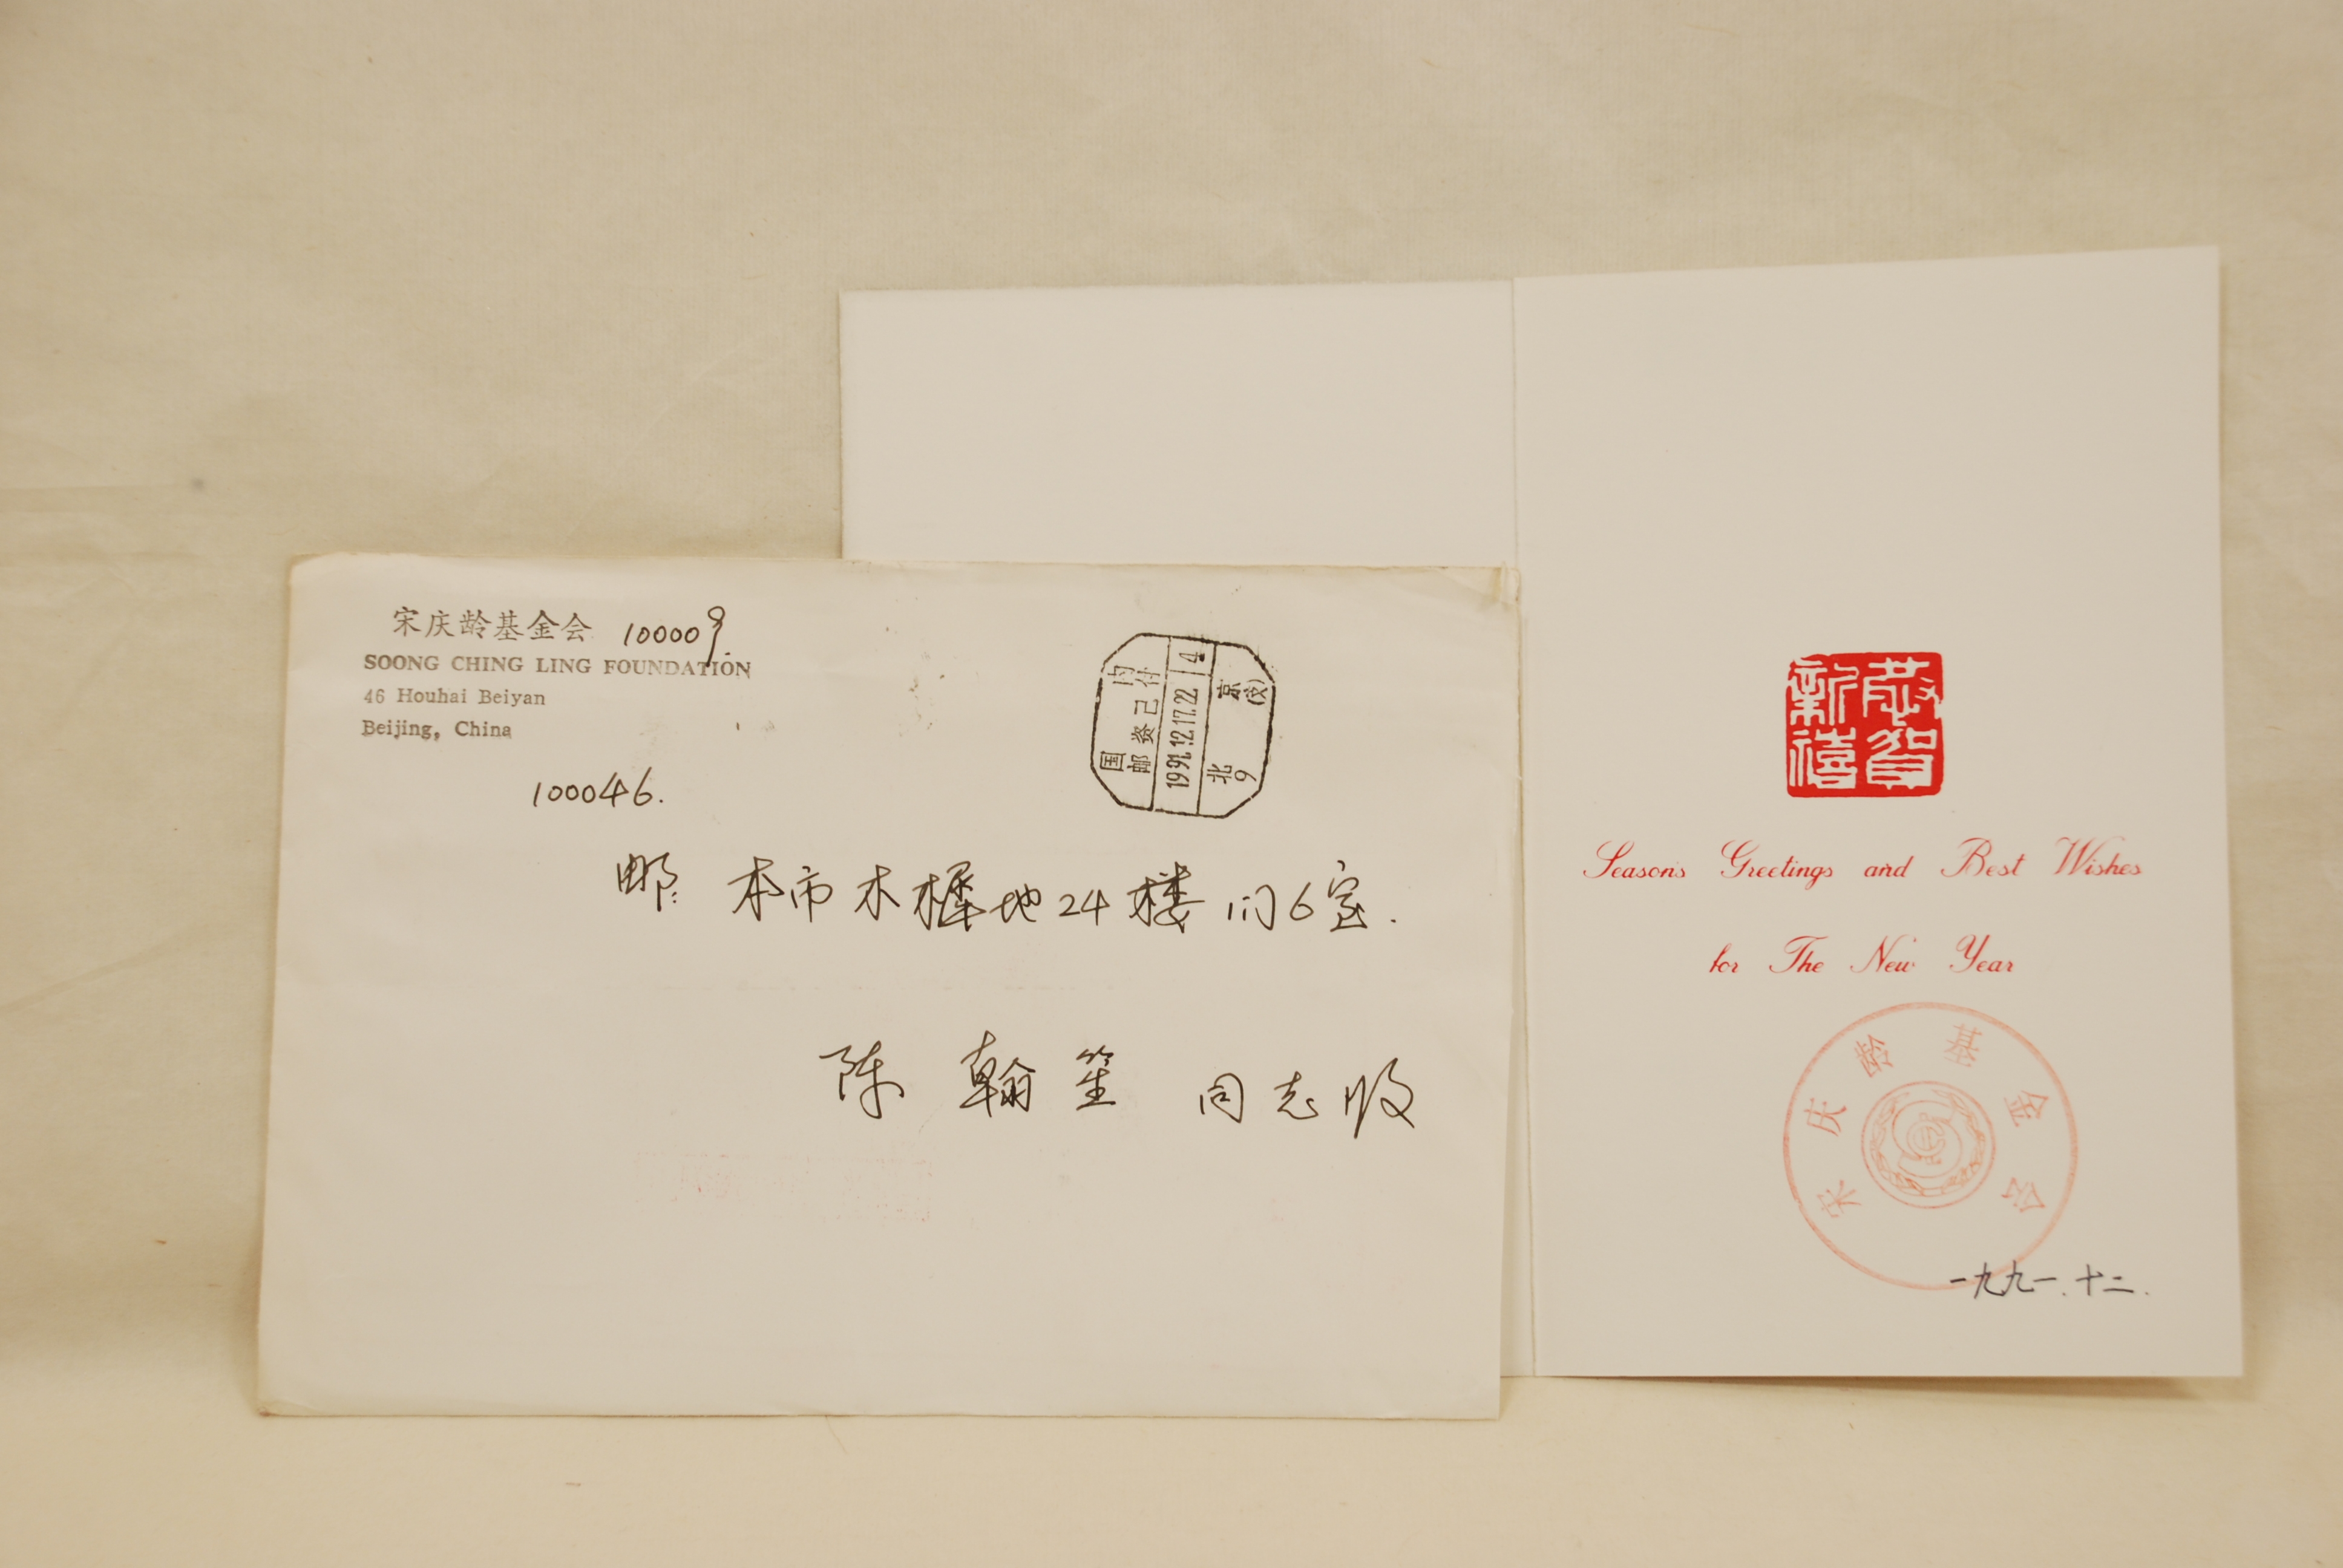 宋庆龄基金会 100009.
SOONG CHING LING FOUNDATION
46 Houhai Beiyan
Beijing, China
国内
邮资已付
1991.12.17.22 4
北京
9 (支)
100046.
邮: 本市木樨地24楼1门6室.
陈翰笙 同志收
恭贺
新禧
Season's Greetings and Best Wishes
for The New Year
宋庆龄基金会
一九九一.十二.